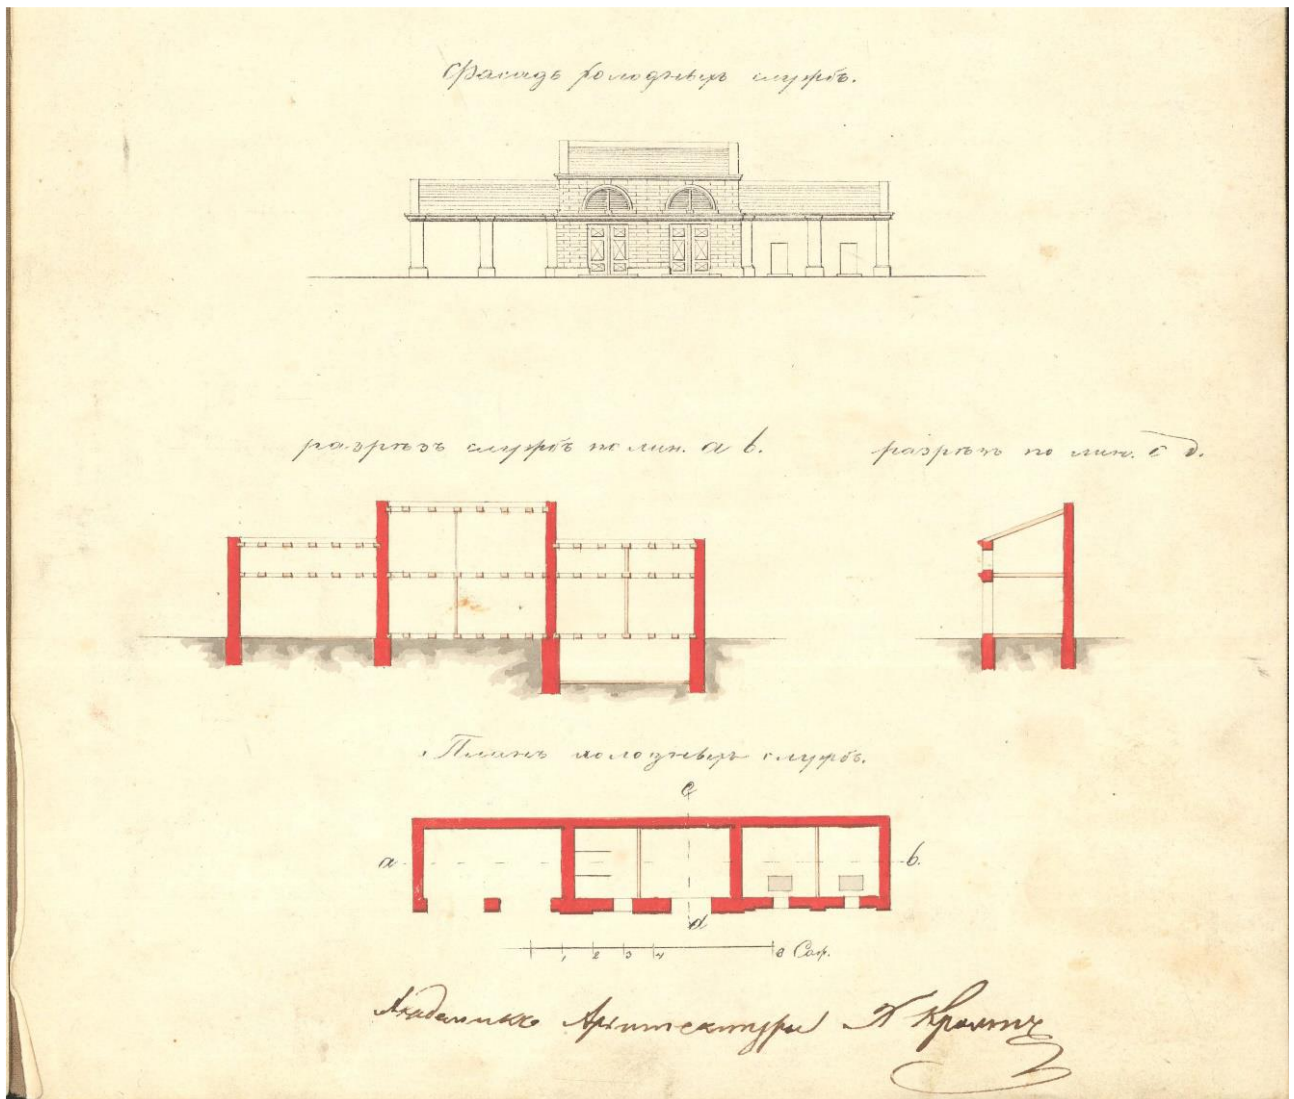 Фасадъ холодныхъ службъ.
разрѣзъ службъ по лин. a b.
разрѣзъ по лин. c d.
Планъ холодныхъ службъ.
c
a
b.
d
1 2 3 4 8 Саж.
Академикъ Архитектуры